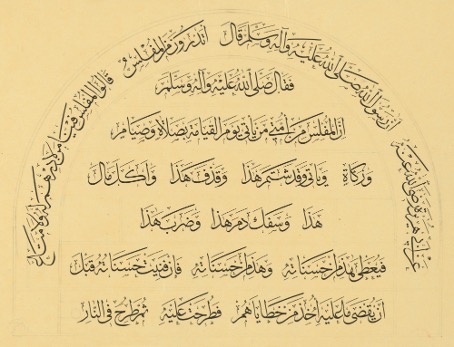 عن أبي هريرة رضي الله عنه أن رسول الله صلى الله عليه وآله وسلم قال أتدرون من المفلس قالوا المفلس فينا من لا درهم له ولا متاع
فقال صلى الله عليه وآله وسلم
إن المفلس من أمتي من يأتي يوم القيامة بصلاة وصيام
وزكاة ويأتي وقد شتم هذا وقذف هذا وأكل مال
هذا وسفك دم هذا وضرب هذا
فيعطى هذا من حسناته وهذا من حسناته فإن فنيت حسناته قبل
أن يقضى ما عليه أخذ من خطاياهم فطرحت عليه ثم طرح في النار